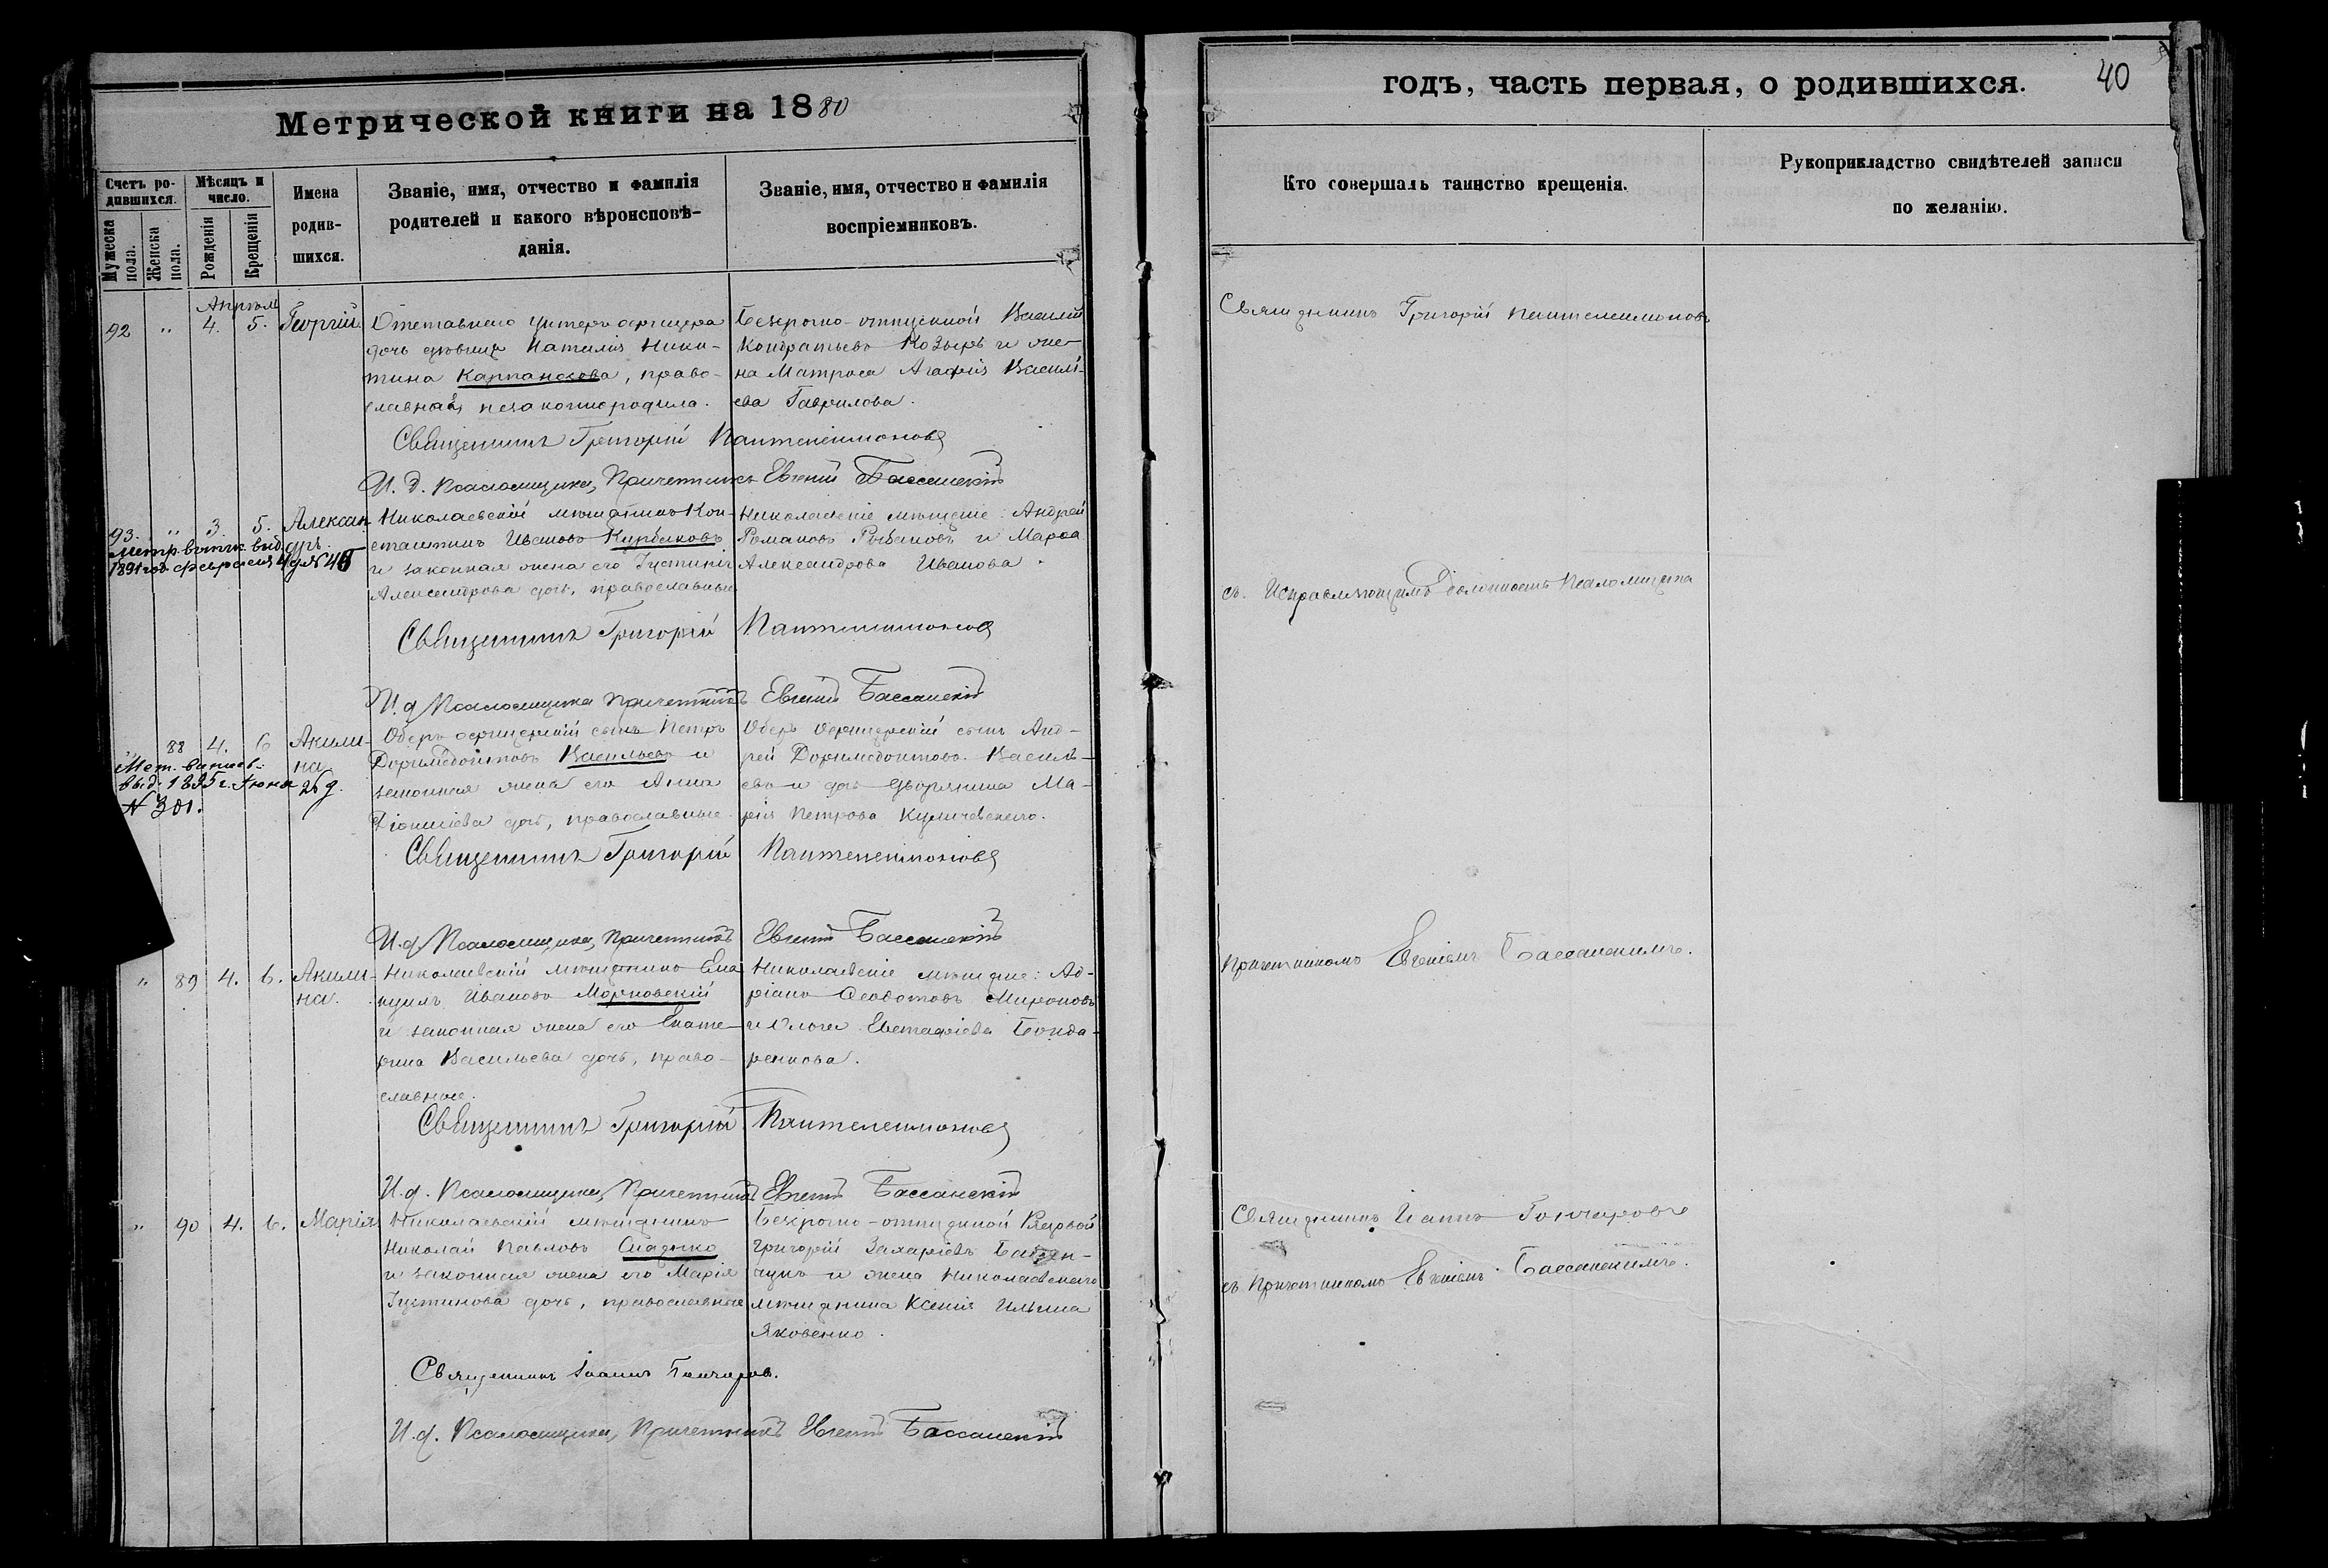 Метрической книги на 1880
годъ, часть первая, о родившихся. 40
Счетъ родившихся.
Мужеска пола.
Женска пола.
Мѣсяцъ и число.
Рожденія
Крещенія
Имена родив-
шихся.
Званіе, имя, отчество и фамилія
родителей и какого вѣроисповѣ-
данія.
Званіе, имя, отчество и фамилія
воспріемниковъ.
Кто совершалъ таинство крещенія.
Рукоприкладство свидѣтелей записи
по желанію.
Апрѣль
92 " 4. 5. Георгій
Отставнаго унтеръ офицера
дочь дѣвица Наталія Ники-
тина, право-
славная, незаконнородила.
Безсрочно-отпускной Василій
Кондратьевъ Козырь и же-
на Матроса Агафія Василі-
ева Гаврилова.
Священникъ Григорій Пантелеимоновъ
Священникъ Григорій Пантелеимоновъ
И. д. Псаломщика, Причетникъ Евгеній Бассанскій
93. " 3. 5. Алексан-
дръ.
Метр. выпис. выд.
1891 год. февраля 4 д. №
Николаевскій мѣщанинъ Кон-
стантинъ Ивановъ Курбаковъ
и законная жена его Іустинія
Александрова дочь, православные
Николаевскіе мѣщане: Андрей
Романовъ Рыбаковъ и Марѳа
Александрова Иванова.
съ Исправляющимъ должность Псаломщика
Священникъ Григорій Пантелеимоновъ
И. д. Псаломщика Причетникъ Евгеній Бассанскій
" 88 4. 6 Акили-
на
Мет. выпись
выд. 1895 г. Июня 26 д.
N 301.
Оберъ офицерскій сынъ Петръ
Доримедонтовъ Васильевъ и
законная жена его Анна
Діонисіева дочь, православные
Оберъ офицерскій сынъ Анд-
рей Доримедонтовъ Василь-
евъ и дочь дворянина Ма-
рія Петрова
Священникъ Григорій Пантелеимоновъ
И. д. Псаломщика, Причетникъ Евгеній Бассанскій
" 89 4. 6. Акили-
на.
Николаевскій мѣщанинъ Ема-
нуилъ Ивановъ Морковскій
и законная жена его Екате-
рина Васильева дочь, право-
славные.
Николаевскіе мѣщане: Ад-
ріанъ Ѳеодотовъ Мироновъ
и Ольга Евстафіева Бонда-
ренкова.
Причетникомъ Евгеніемъ Бассанскимъ.
Священникъ Григорій Пантелеимоновъ
И. д. Псаломщика, Причетникъ Евгеній Бассанскій
" 90 4. 6. Марія
Николаевскій мѣщанинъ
Николай Павловъ
и законная жена его Марія
Іустинова дочь, православные
Безсрочно-отпускной Рядовой
Григорій Захаріевъ
и жена Николаевскаго
мѣщанина Ксенія Ильина
Яковенко.
Священникъ Іоаннъ Гончаровъ
съ Причетникомъ Евгеніемъ Бассанскимъ.
Священникъ Іоаннъ Гончаровъ.
И. д. Псаломщика, Причетникъ Евгеній Бассанскій